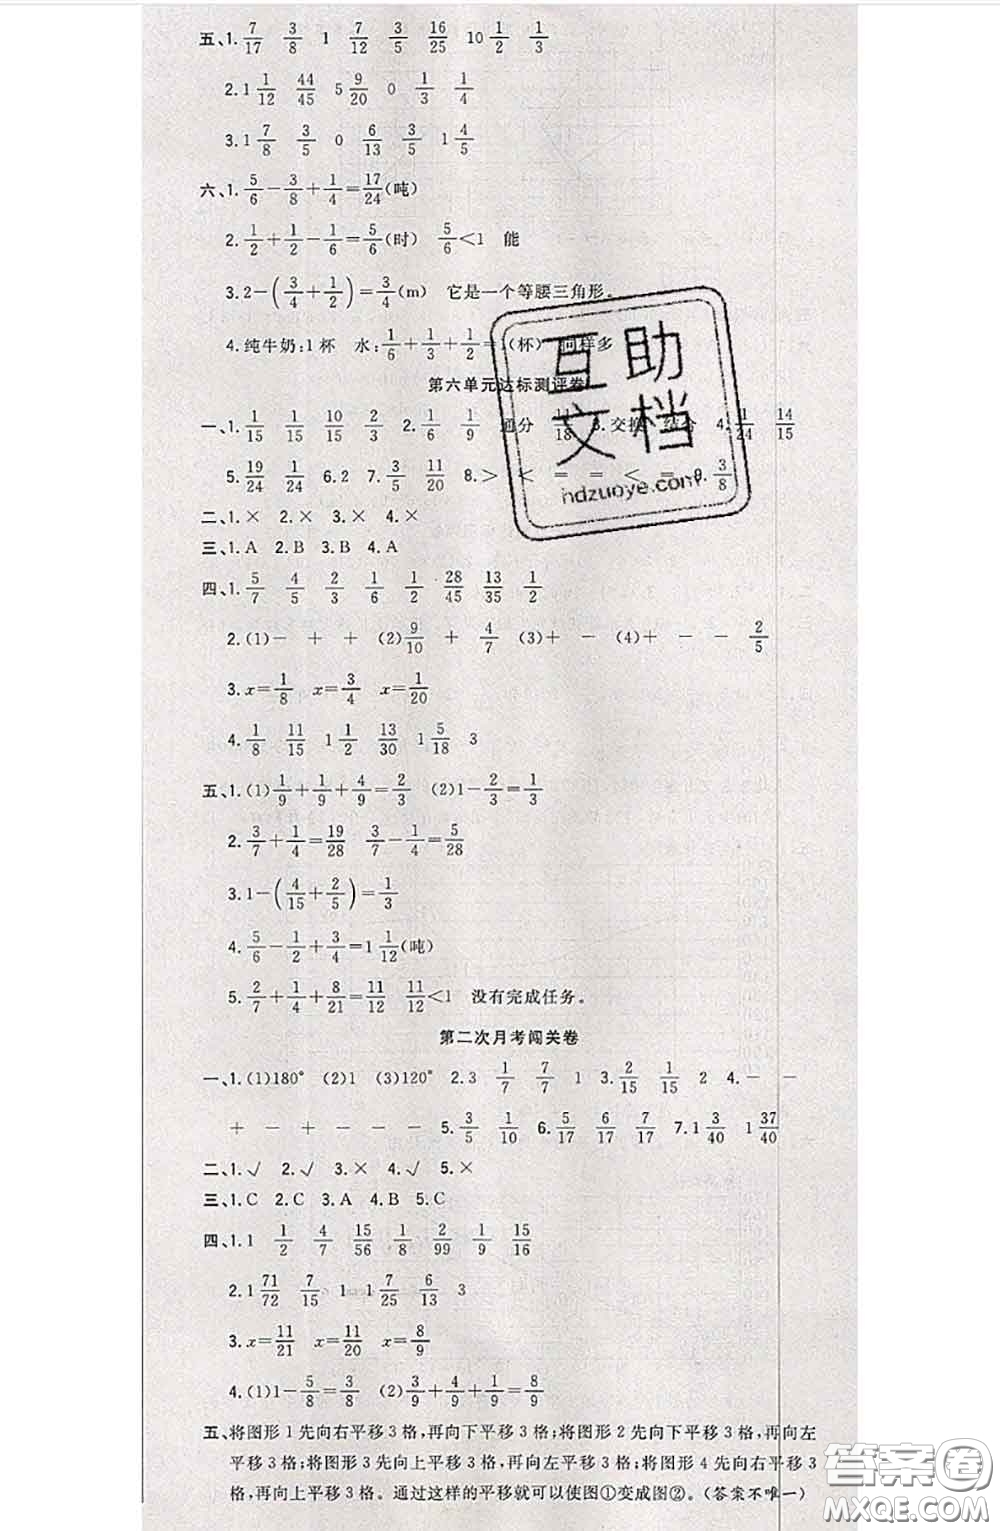 五、1. 7/17 3/8 1 7/12 3/5 16/25 10 1/2 1/3
2. 1 1/12 44/45 5 9/20 0 1/3 1/4
3. 1 7/8 3/5 0 6/13 3/5 1 4/5
六、1. 5/6－3/8＋1/4＝17/24(吨)
2. 1/2＋1/2－1/6＝5/6(时) 5/6＜1 能
3. 2－(3/4＋1/2)＝3/4(m) 它是一个等腰三角形。
4. 纯牛奶:1杯 水:1/6＋1/3＋1/2＝1(杯) 同样多
第六单元达标测评卷
一、1. 1/15 1/15 10/15 2/3 2. 1/6 1/9 通分 11/18 3. 交换 结合 4. 1/24 14/15
5. 19/24 1/24 6. 2 7. 3/5 11/20 8. ＞ ＜ ＝ ＝ ＜ ＝ 9. 3/8
二、1. × 2. × 3. × 4. ×
三、1. A 2. B 3. B 4. A
四、1. 5/7 4/5 2/3 1/6 1/2 28/45 13/35 1/2
2. (1)－ ＋ ＋ (2)9/10 ＋ 4/7 (3)＋ － (4)＋ － － 2/5
3. x＝1/8 x＝3/4 x＝1/20
4. 1/8 11/15 1 1/2 13/30 1 5/18 3
五、1. (1)1/9＋1/9＋4/9＝2/3 (2)1－2/3＝1/3
2. 3/7＋1/4＝19/28 3/7－1/4＝5/28
3. 1－(4/15＋2/5)＝1/3
4. 5/6－1/2＋3/4＝1 1/12(吨)
5. 2/7＋1/4＋8/21＝11/12 11/12＜1 没有完成任务。
第二次月考闯关卷
一、1. (1)180° (2)1 (3)120° 2. 3 1/7 7/7 1 3. 2/15 1/15 2 4. － －
＋ － ＋ － － － 5. 3/5 1/10 6. 5/17 6/17 7/17 7. 1 3/40 1 37/40
二、1. √ 2. √ 3. × 4. √ 5. ×
三、1. C 2. C 3. A 4. B 5. C
四、1. 1 1/2 4/7 15/56 1/8 2/99 1/9 15/16
2. 1 71/72 7/15 1 1 7/25 6/13 3
3. x＝11/21 x＝11/20 x＝8/9
4. (1)1－5/8＝3/8 (2)3/9＋4/9＋1/9＝8/9
五、将图形1先向右平移3格,再向下平移3格;将图形2先向下平移3格,再向左
平移3格;将图形3先向上平移3格,再向左平移3格;将图形4先向右平移3
格,再向上平移3格。通过这样的平移就可以使图①变成图②。(答案不唯一)
互助
文档
hdzuoye.com
答案圈
MXQE.COM